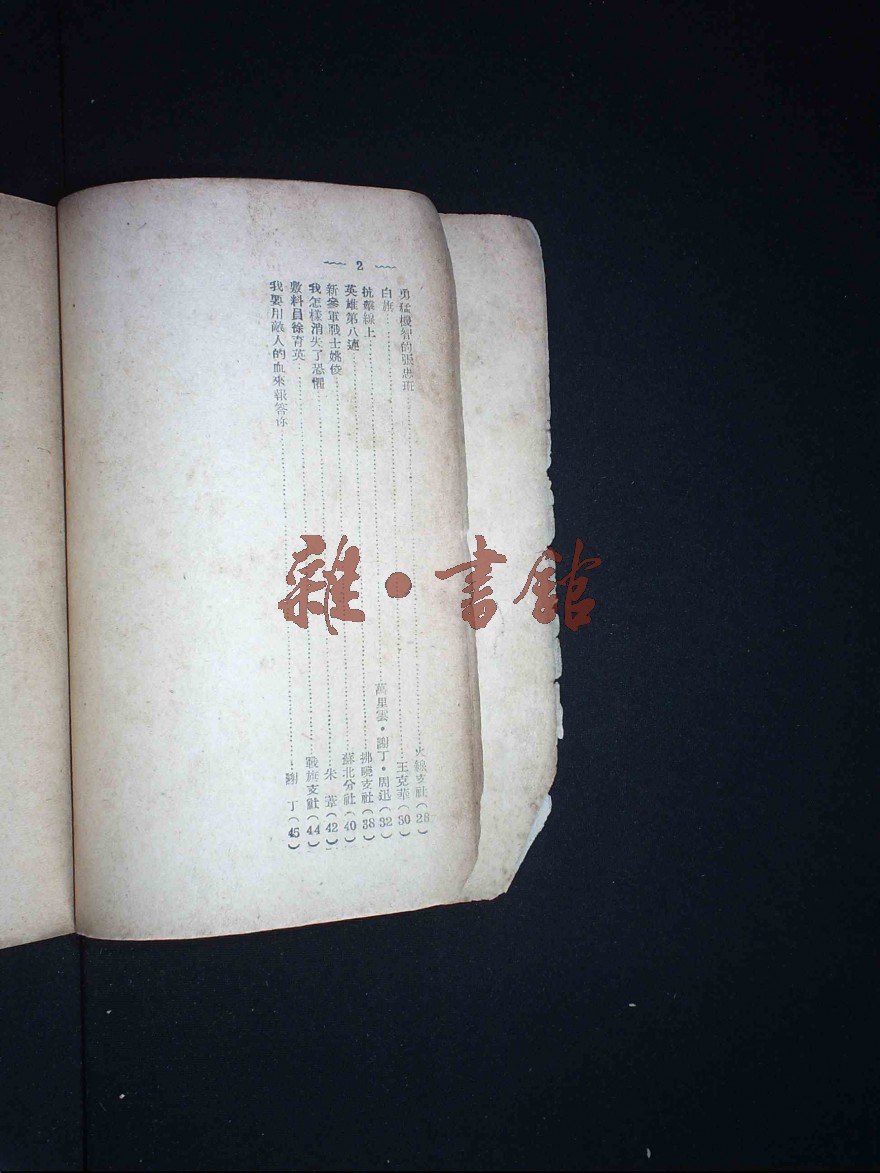 2
勇猛機智的張忠班……火線支社(28)
白旗……王克華(30)
抗擊線上……萬里雲・謝丁・周迅(32)
英雄第八連……拂曉支社(38)
新參軍戰士姚俊……蘇北分社(40)
我怎樣消失了恐懼……朱葦(42)
敷料員徐育英……戰旗支社(44)
我要用敵人的血來報答你……謝丁(45)
雜・書館